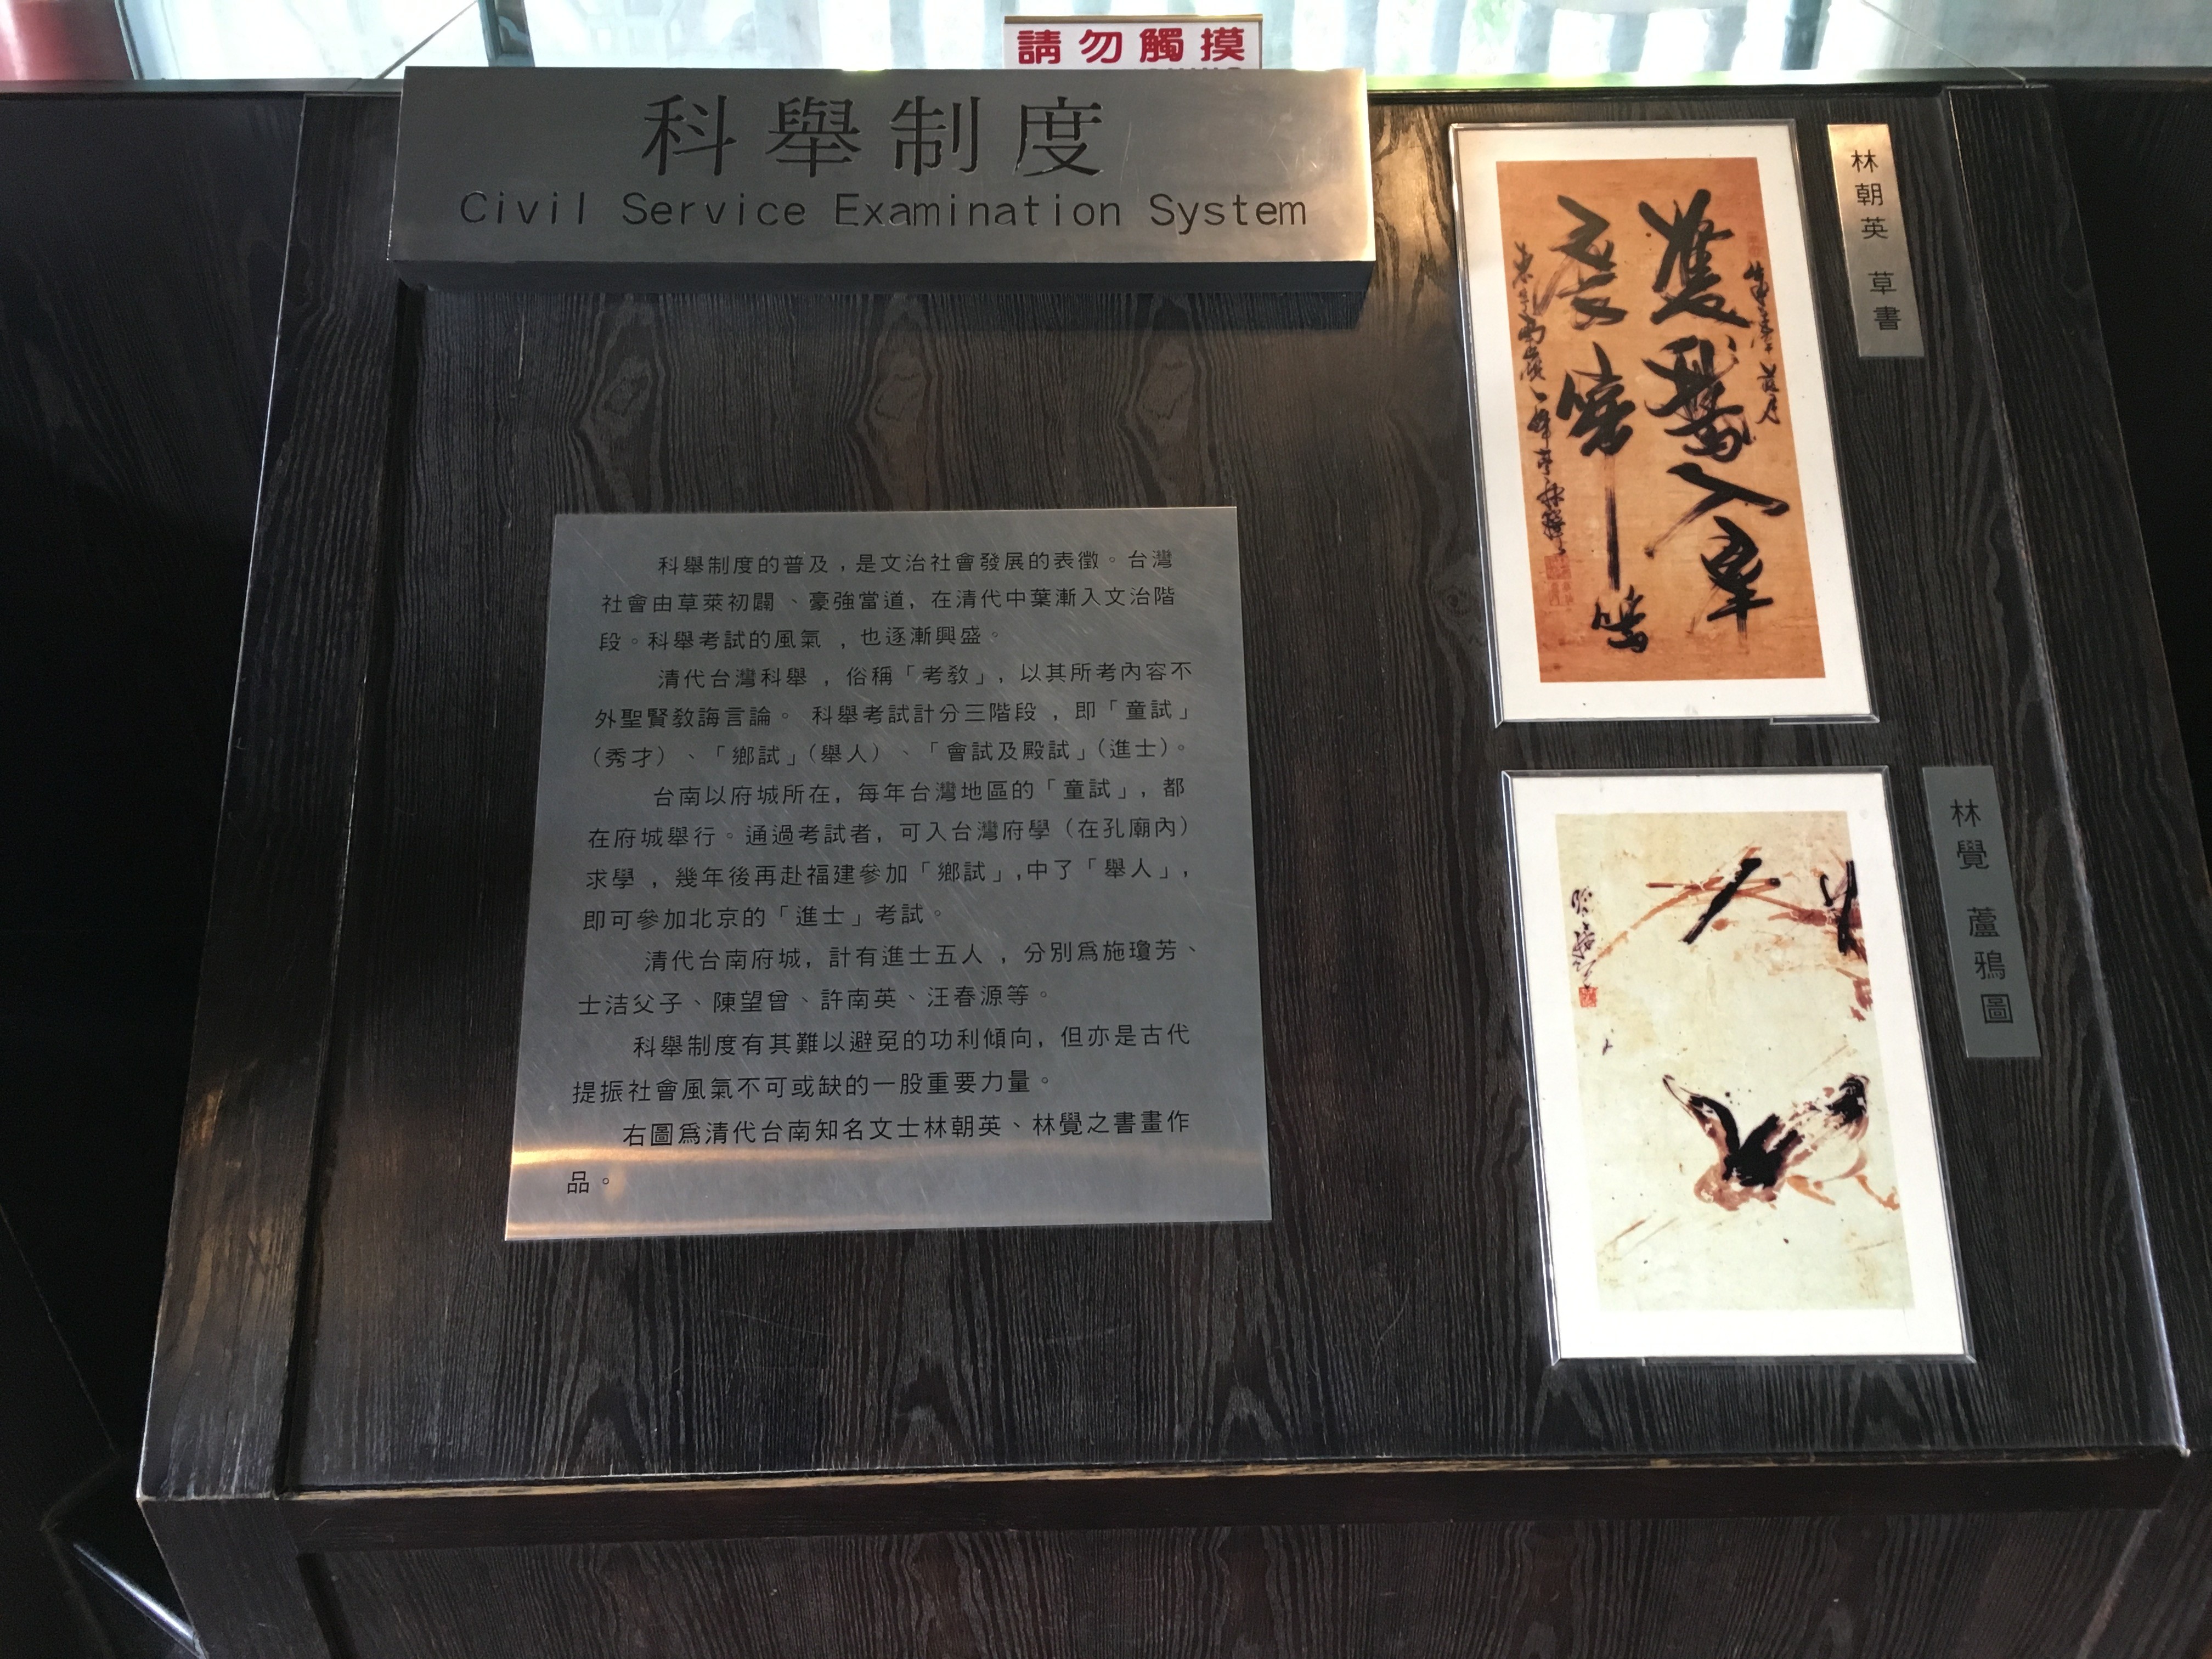 請勿觸摸
科舉制度
Civil Service Examination System
科舉制度的普及，是文治社會發展的表徵。台灣
社會由草萊初闢、豪強當道，在清代中葉漸入文治階
段。科舉考試的風氣，也逐漸興盛。
清代台灣科舉，俗稱「考教」，以其所考內容不
外聖賢教誨言論。科舉考試計分三階段，即「童試」
（秀才）、「鄉試」（舉人）、「會試及殿試」（進士）。
台南以府城所在，每年台灣地區的「童試」，都
在府城舉行。通過考試者，可入台灣府學（在孔廟內）
求學，幾年後再赴福建參加「鄉試」，中了「舉人」，
即可參加北京的「進士」考試。
清代台南府城，計有進士五人，分別為施瓊芳、
士洁父子、陳望曾、許南英、汪春源等。
科舉制度有其難以避免的功利傾向，但亦是古代
提振社會風氣不可或缺的一股重要力量。
右圖為清代台南知名文士林朝英、林覺之書畫作
品。
林朝英 草書
林覺 蘆鴉圖